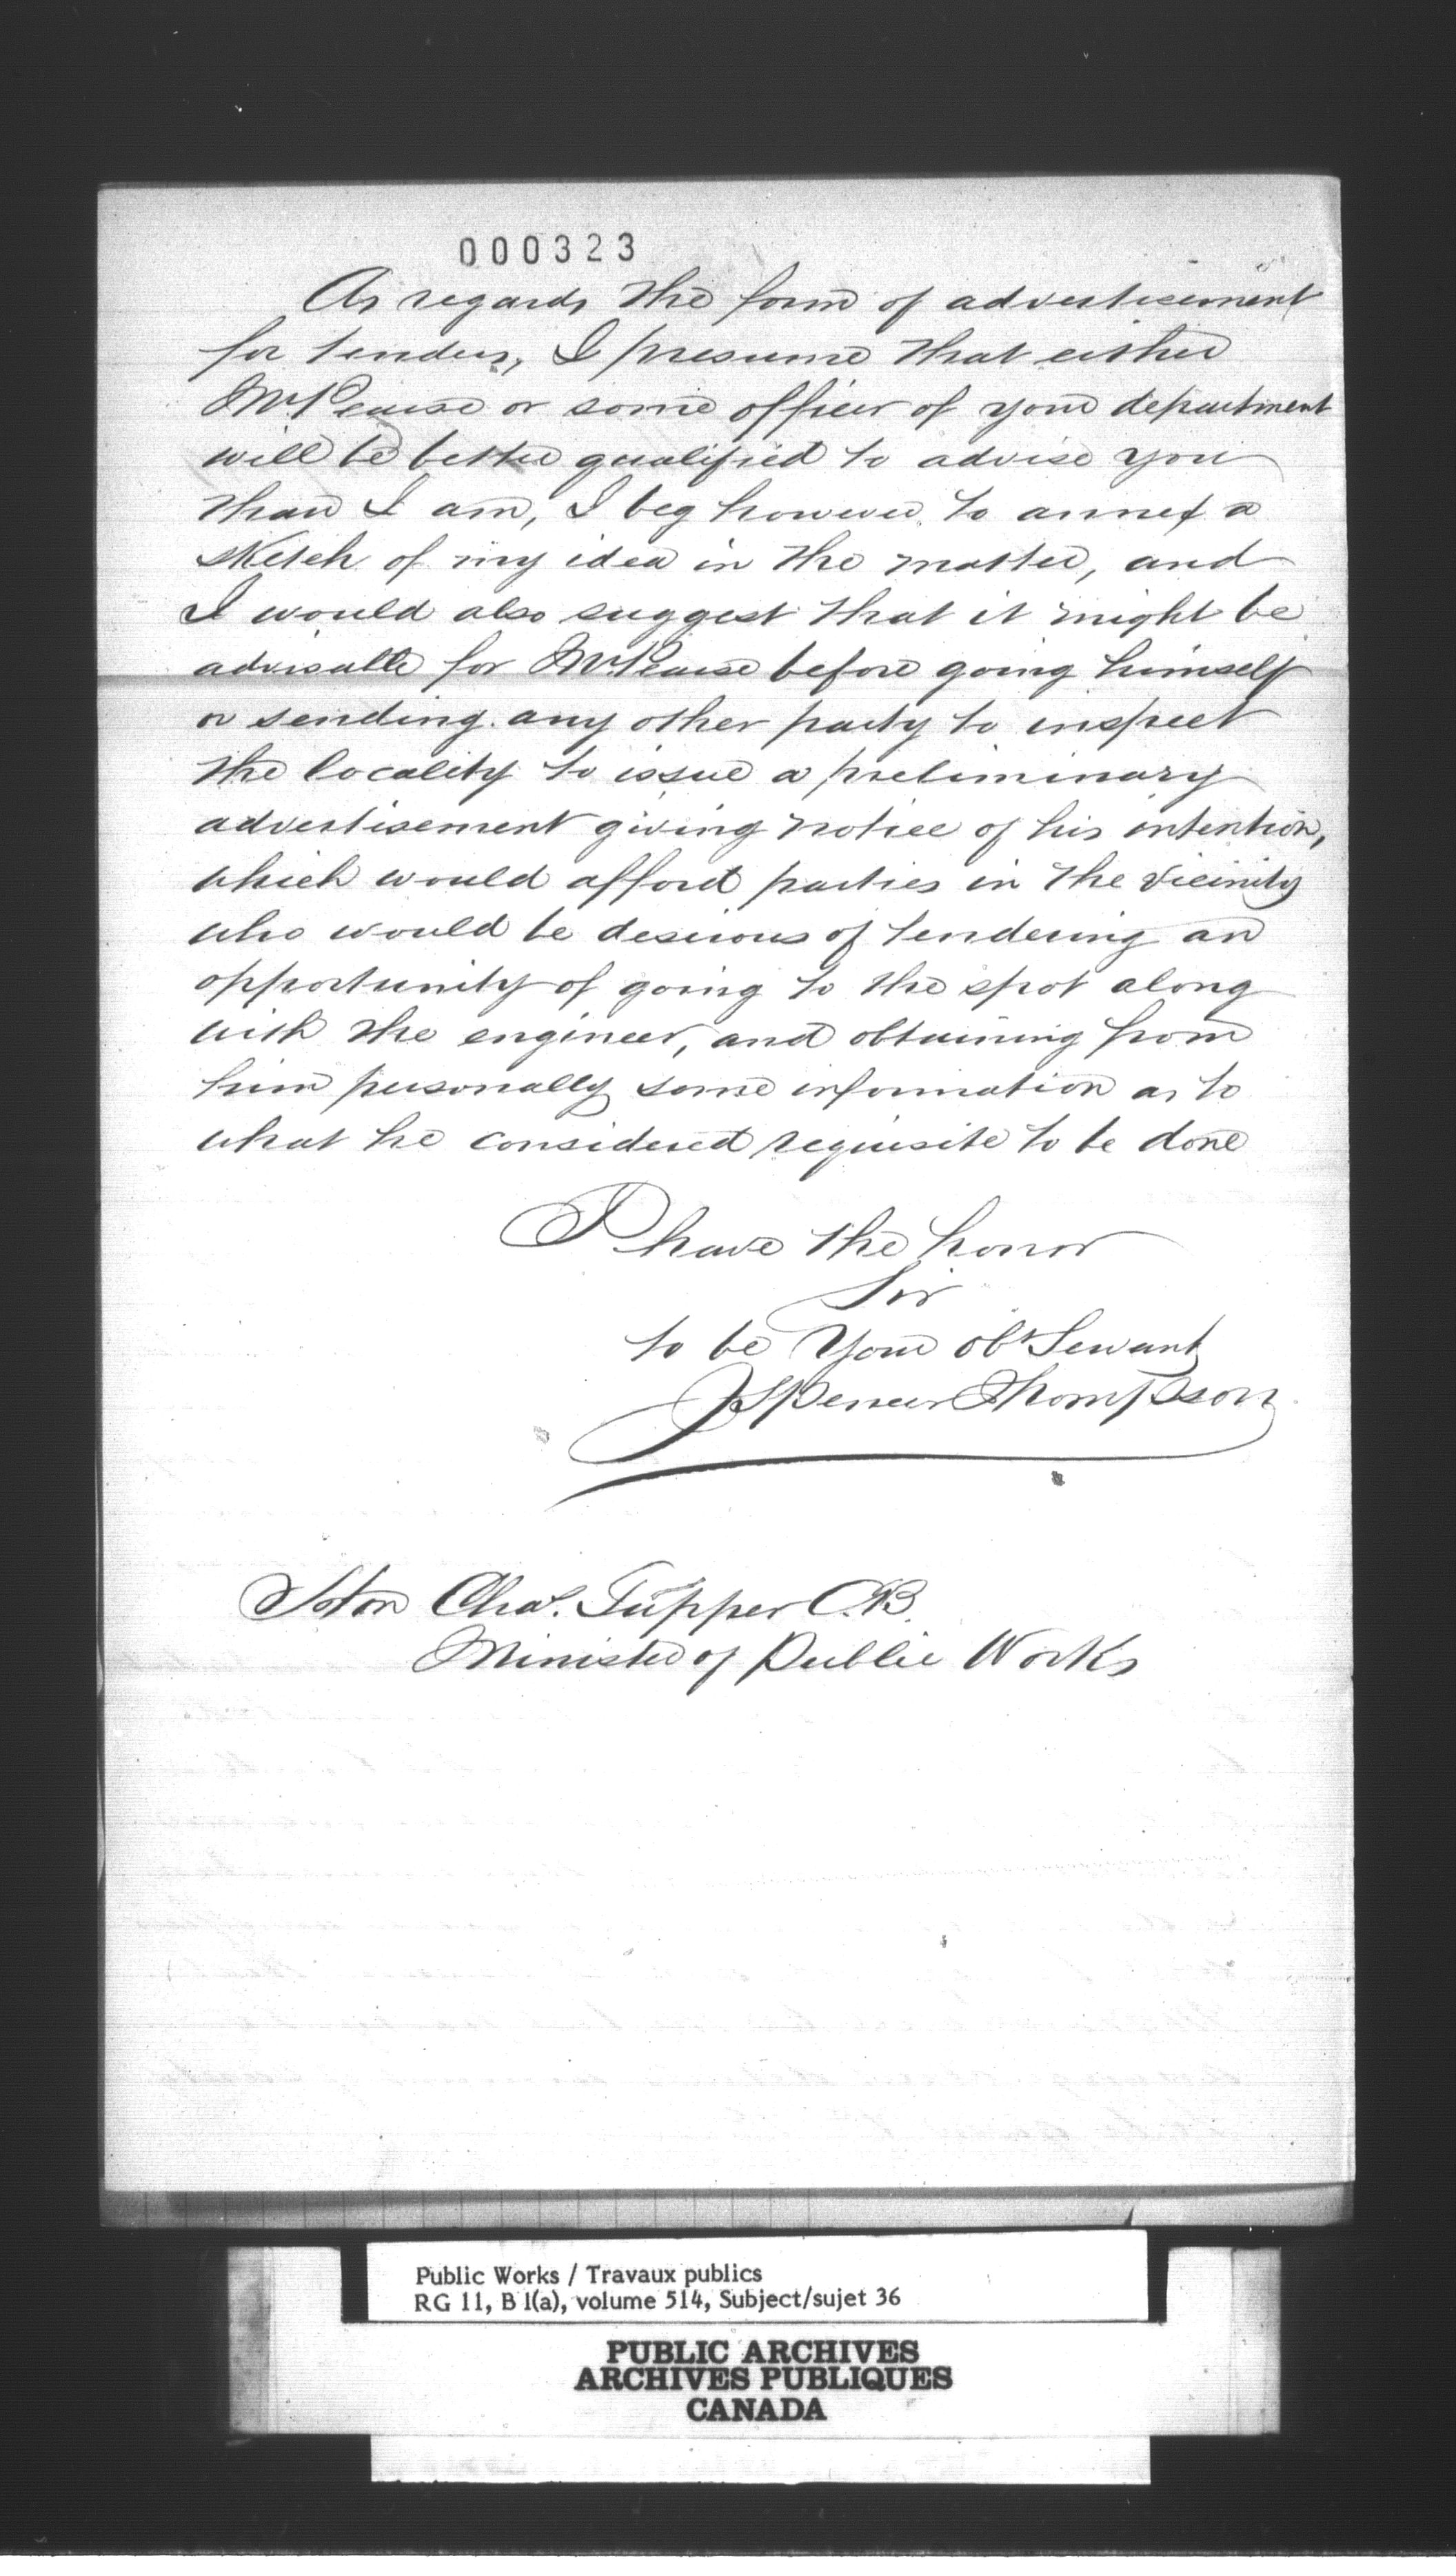 000323
As regards the form of advertisement
for tenders, I presume that either
Mr Pearse or some officer of your department
will be better qualified to advise you
than I am, I beg however to annex a
sketch of my idea in the matter, and
I would also suggest that it might be
advisable for Mr Pearse before going himself
or sending any other party to inspect
the locality to issue a preliminary
advertisement giving notice of his intention,
which would afford parties in the vicinity
who would be desirous of tendering an
opportunity of going to the spot along
with the engineer, and obtaining from
him personally some information as to
what he considered requisite to be done
I have the honor
Sir
to be Your obt Servant
J Spencer Thompson
Hon Chas. Tupper C.B.
Minister of Public Works
Public Works / Travaux publics
RG 11, B 1(a), volume 514, Subject/sujet 36
PUBLIC ARCHIVES
ARCHIVES PUBLIQUES
CANADA